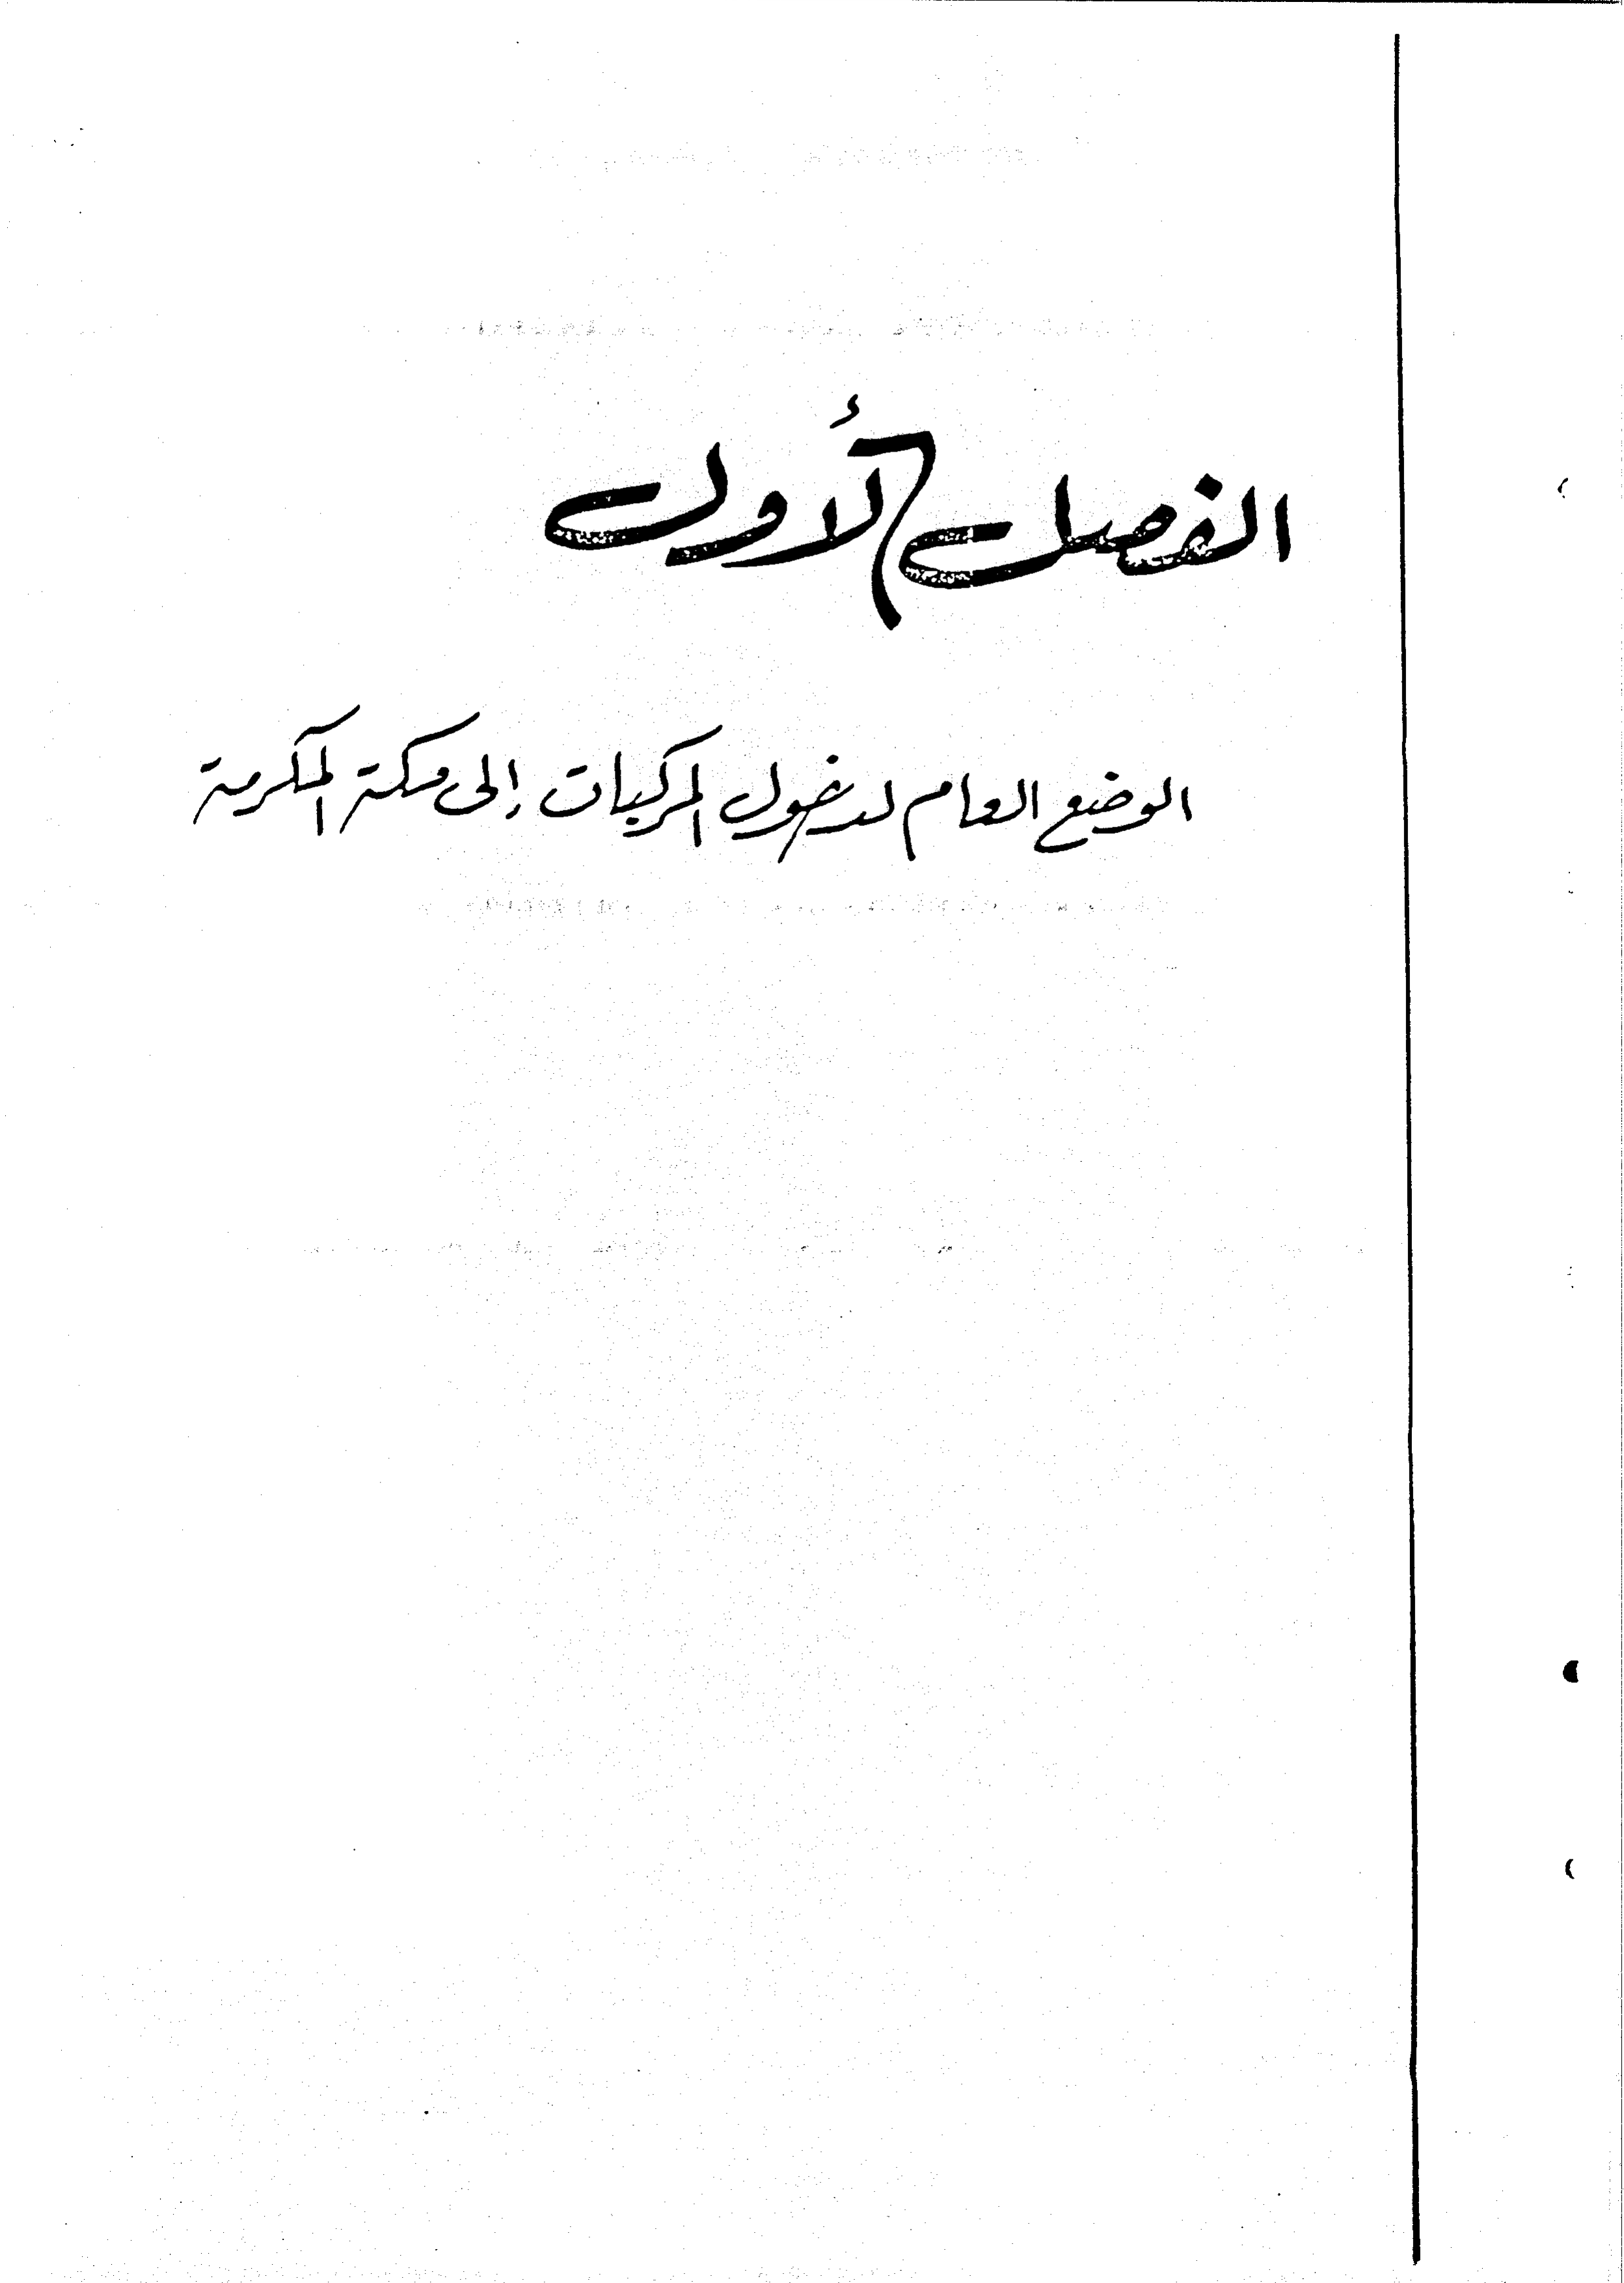 الفصل الأول
الوضع العام لدخول المركبات إلى مكة المكرمة